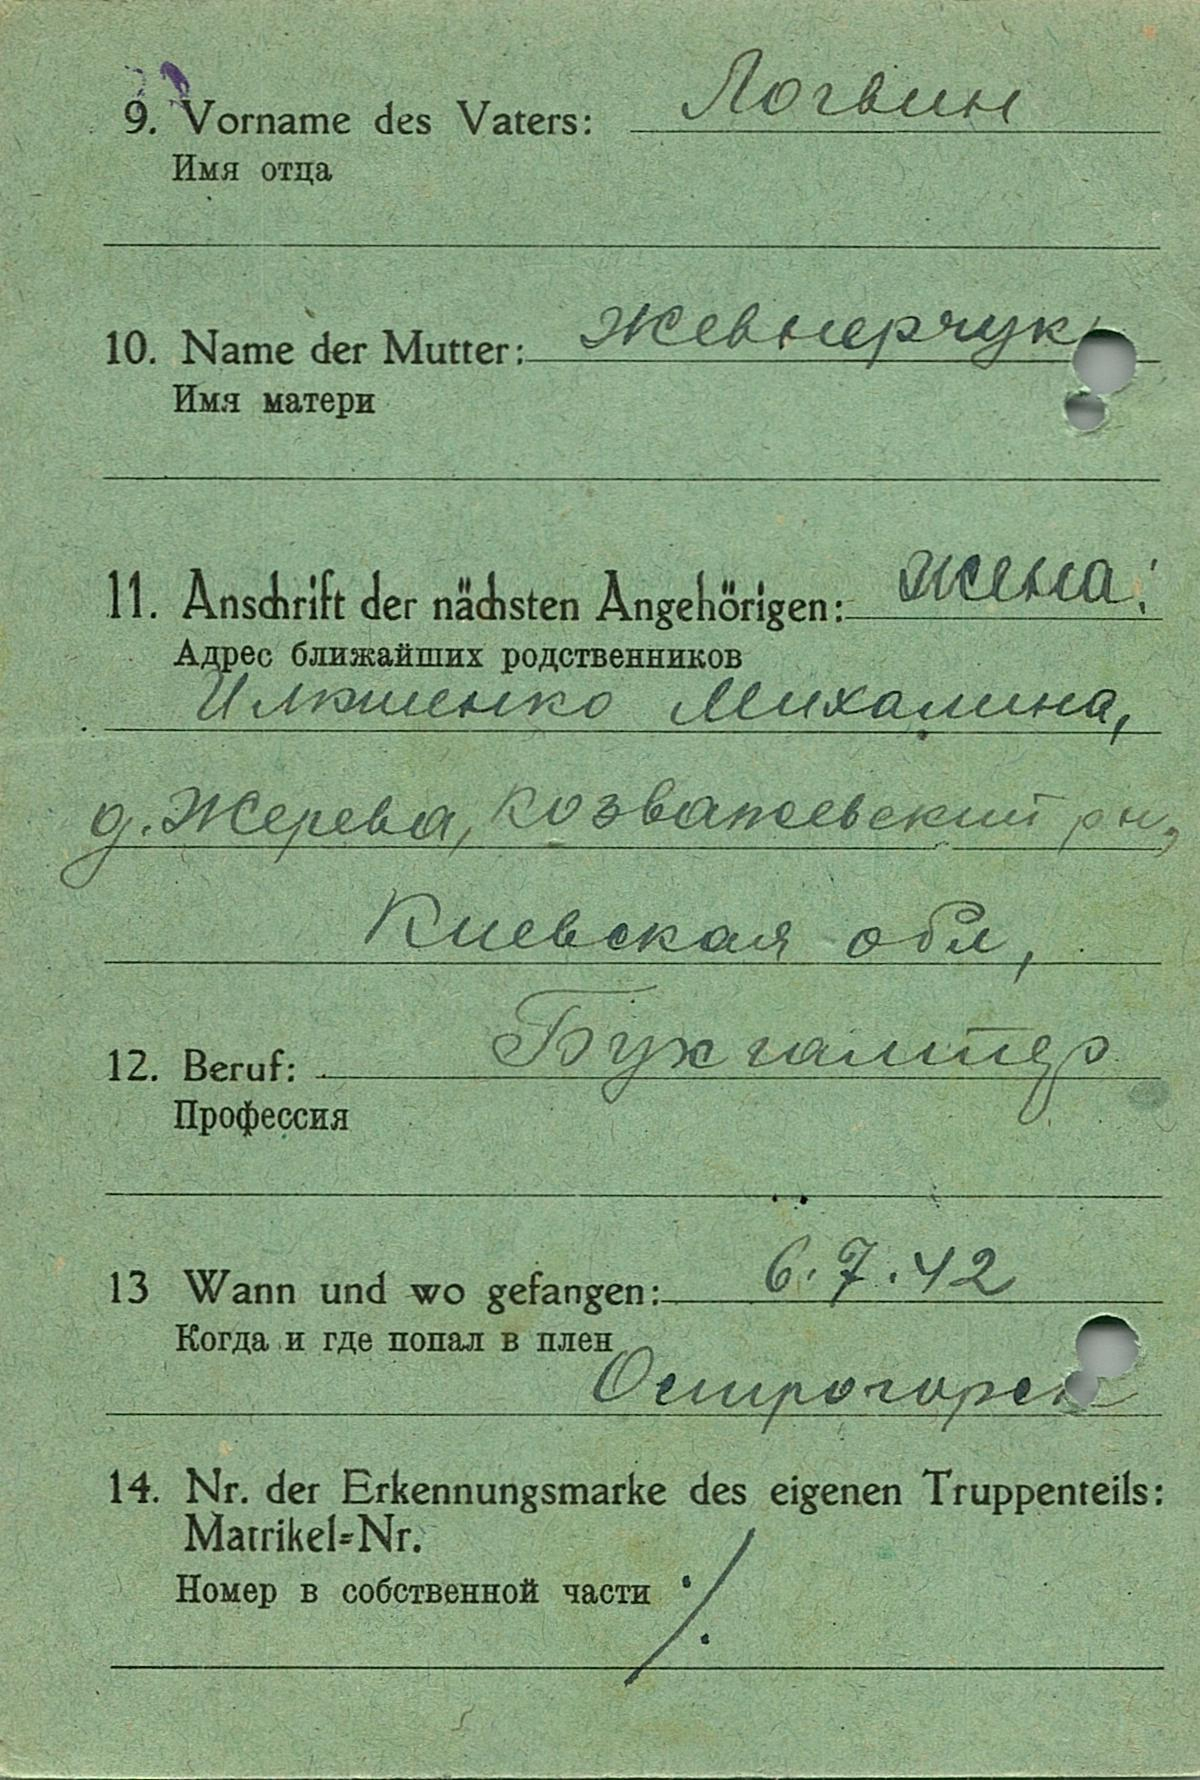 9. Vorname des Vaters: Логвин
Имя отца
10. Name der Mutter: Жевнерчук
Имя матери
11. Anschrift der nächsten Angehörigen: жена:
Адрес ближайших родственников
Михалина,
д. Жерева, Розважевский рн,
Киевская обл,
12. Beruf: Бухгалтер
Профессия
13 Wann und wo gefangen: 6.7.42
Когда и где попал в плен
Острогорск
14. Nr. der Erkennungsmarke des eigenen Truppenteils:
Matrikel=Nr.
Номер в собственной части ·/.